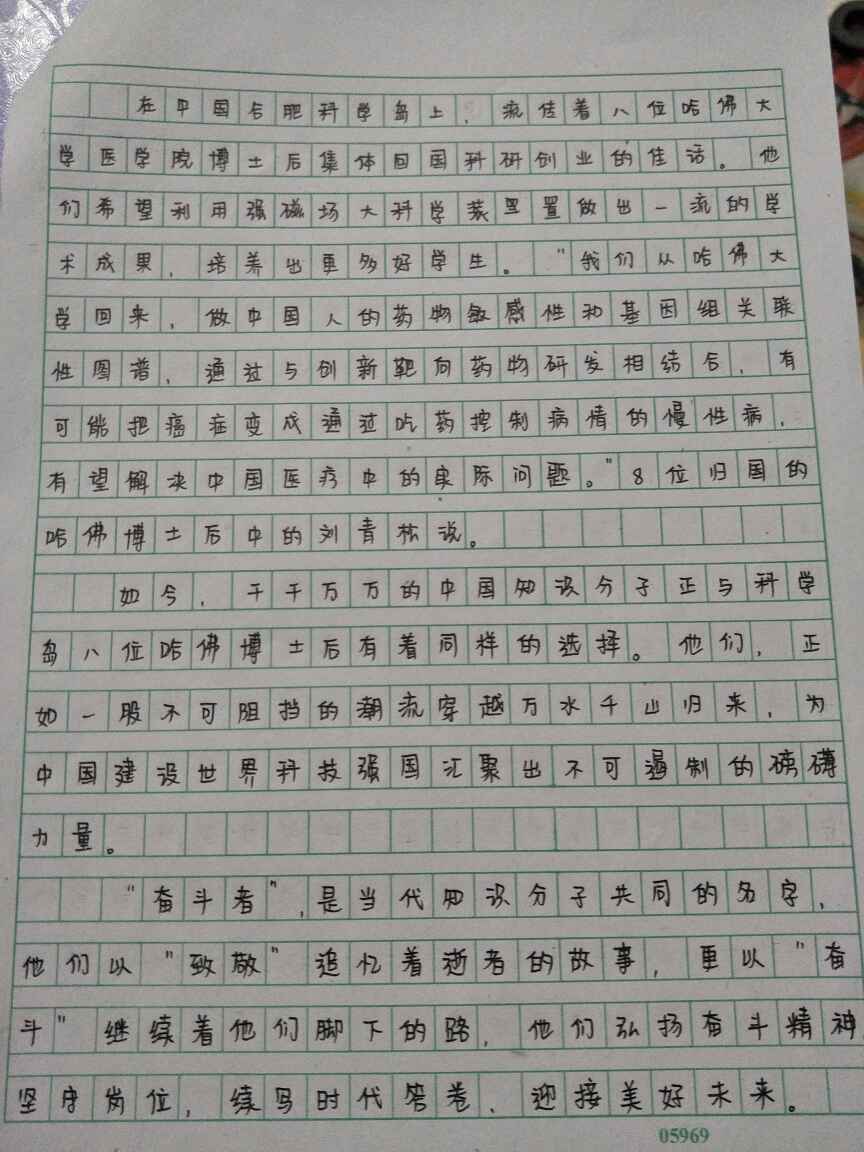 在中国合肥科学岛上，流传着八位哈佛大
学医学院博士后集体回国科研创业的佳话。他
们希望利用强磁场大科学装置做出一流的学
术成果，培养出更多好学生。“我们从哈佛大
学回来，做中国人的药物敏感性和基因组关联
性图谱，通过与创新靶向药物研发相结合，有
可能把癌症变成通过吃药控制病情的慢性病，
有望解决中国医疗中的实际问题。”8位归国的
哈佛博士后中的刘青松说。
如今，千千万万的中国知识分子正与科学
岛八位哈佛博士后有着同样的选择。他们，正
如一股不可阻挡的潮流穿越万水千山归来，为
中国建设世界科技强国汇聚出不可遏制的磅礴
力量。
“奋斗者”，是当代知识分子共同的名字，
他们以“致敬”追忆着逝者的故事，更以“奋
斗”继续着他们脚下的路，他们弘扬奋斗精神
坚守岗位，续写时代答卷，迎接美好未来。
05969